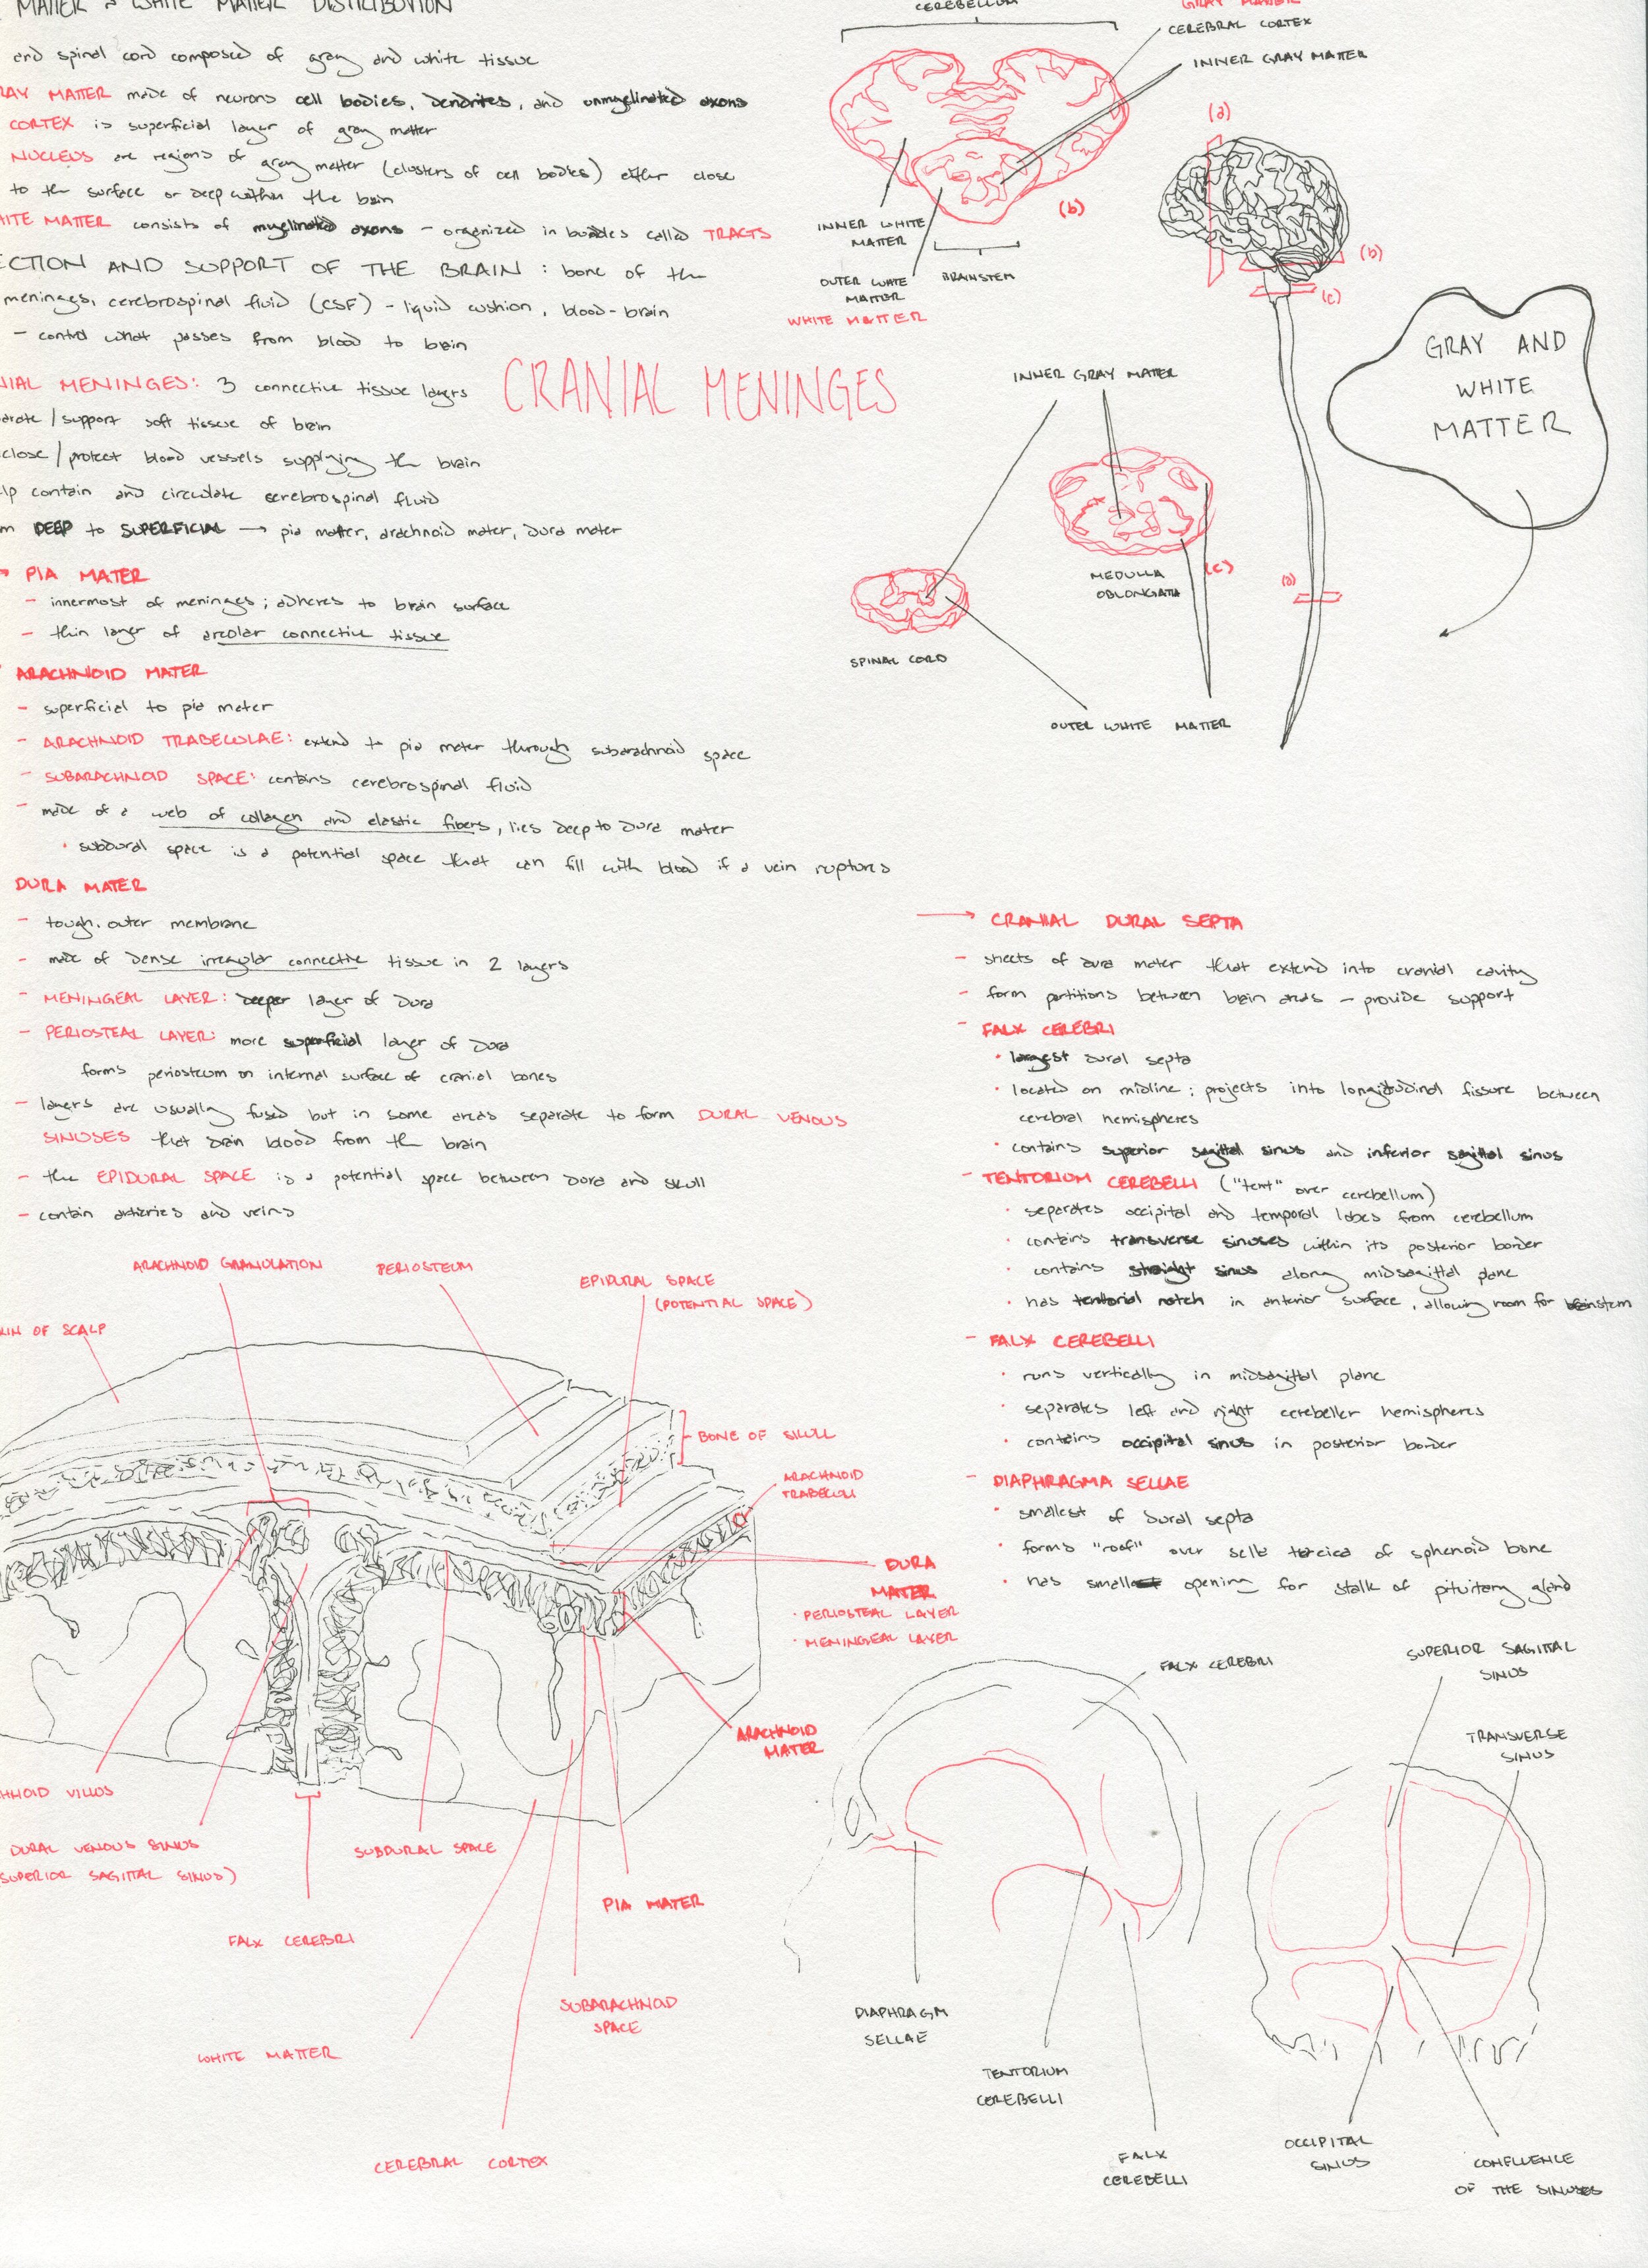 MATTER & WHITE MATTER DISTRIBUTION
and spinal cord composed of gray and white tissue
RAY MATTER made of neurons cell bodies, dendrites, and unmyelinated axons
CORTEX is superficial layer of gray matter
NUCLEUS are regions of gray matter (clusters of cell bodies) either close
to the surface or deep within the brain
HITE MATTER consists of myelinated axons - organized in bundles called TRACTS
ECTION AND SUPPORT OF THE BRAIN: bone of the
meninges, cerebrospinal fluid (CSF) - liquid cushion, blood-brain
- control what passes from blood to brain
NIAL MENINGES: 3 connective tissue layers
arate/support soft tissue of brain
close/protect blood vessels supplying the brain
lp contain and circulate cerebrospinal fluid
m DEEP to SUPERFICIAL → pia matter, arachnoid mater, dura mater
CRANIAL MENINGES
→ PIA MATER
- innermost of meninges; adheres to brain surface
- thin layer of areolar connective tissue
ARACHNOID MATER
- superficial to pia mater
- ARACHNOID TRABECULAE: extend to pia mater through subarachnoid space
- SUBARACHNOID SPACE: contains cerebrospinal fluid
- made of a web of collagen and elastic fibers, lies deep to dura mater
• subdural space is a potential space that can fill with blood if a vein ruptures
DURA MATER
- tough, outer membrane
- made of dense irregular connective tissue in 2 layers
- MENINGEAL LAYER: deeper layer of dura
- PERIOSTEAL LAYER: more superficial layer of dura
forms periosteum on internal surface of cranial bones
- layers are usually fused but in some areas separate to form DURAL VENOUS
SINUSES that drain blood from the brain
- the EPIDURAL SPACE is a potential space between dura and skull
- contain arteries and veins
CEREBELLUM
GRAY MATTER
CEREBRAL CORTEX
INNER GRAY MATTER
(a)
(b)
INNER WHITE
MATTER
OUTER WHITE
MATTER
BRAINSTEM
WHITE MATTER
(b)
(c)
GRAY AND
WHITE
MATTER
INNER GRAY MATER
MEDULLA
OBLONGATA
(c)
(d)
SPINAL CORD
OUTER WHITE MATTER
→ CRANIAL DURAL SEPTA
- sheets of dura mater that extend into cranial cavity
- form partitions between brain areas - provide support
- FALX CEREBRI
• largest dural septa
• located on midline; projects into longitudinal fissure between
cerebral hemispheres
• contains superior sagittal sinus and inferior sagittal sinus
- TENTORIUM CEREBELLI ("tent" over cerebellum)
• separates occipital and temporal lobes from cerebellum
• contains transverse sinuses within its posterior border
• contains straight sinus along midsagittal plane
• has tentorial notch in anterior surface, allowing room for brainstem
- FALX CEREBELLI
• runs vertically in midsagittal plane
• separates left and right cerebellar hemispheres
• contains occipital sinus in posterior border
- DIAPHRAGMA SELLAE
• smallest of dural septa
• forms "roof" over sella tercica of sphenoid bone
• has small opening for stalk of pituitary gland
ARACHNOID GRANULATION
PERIOSTEUM
EPIDURAL SPACE
(POTENTIAL SPACE)
KIN OF SCALP
BONE OF SKULL
ARACHNOID
TRABECULI
DURA
MATER
• PERIOSTEAL LAYER
• MENINGEAL LAYER
ARACHNOID
MATER
HNOID VILLUS
DURAL VENOUS SINUS
SUPERIOR SAGITTAL SINUS)
SUBDURAL SPACE
FALX CEREBRI
PIA MATER
SUBARACHNOID
SPACE
WHITE MATTER
CEREBRAL CORTEX
FALX CEREBRI
SUPERIOR SAGITTAL
SINUS
TRANSVERSE
SINUS
DIAPHRAGM
SELLAE
TENTORIUM
CEREBELLI
FALX
CEREBELLI
OCCIPITAL
SINUS
CONFLUENCE
OF THE SINUSES